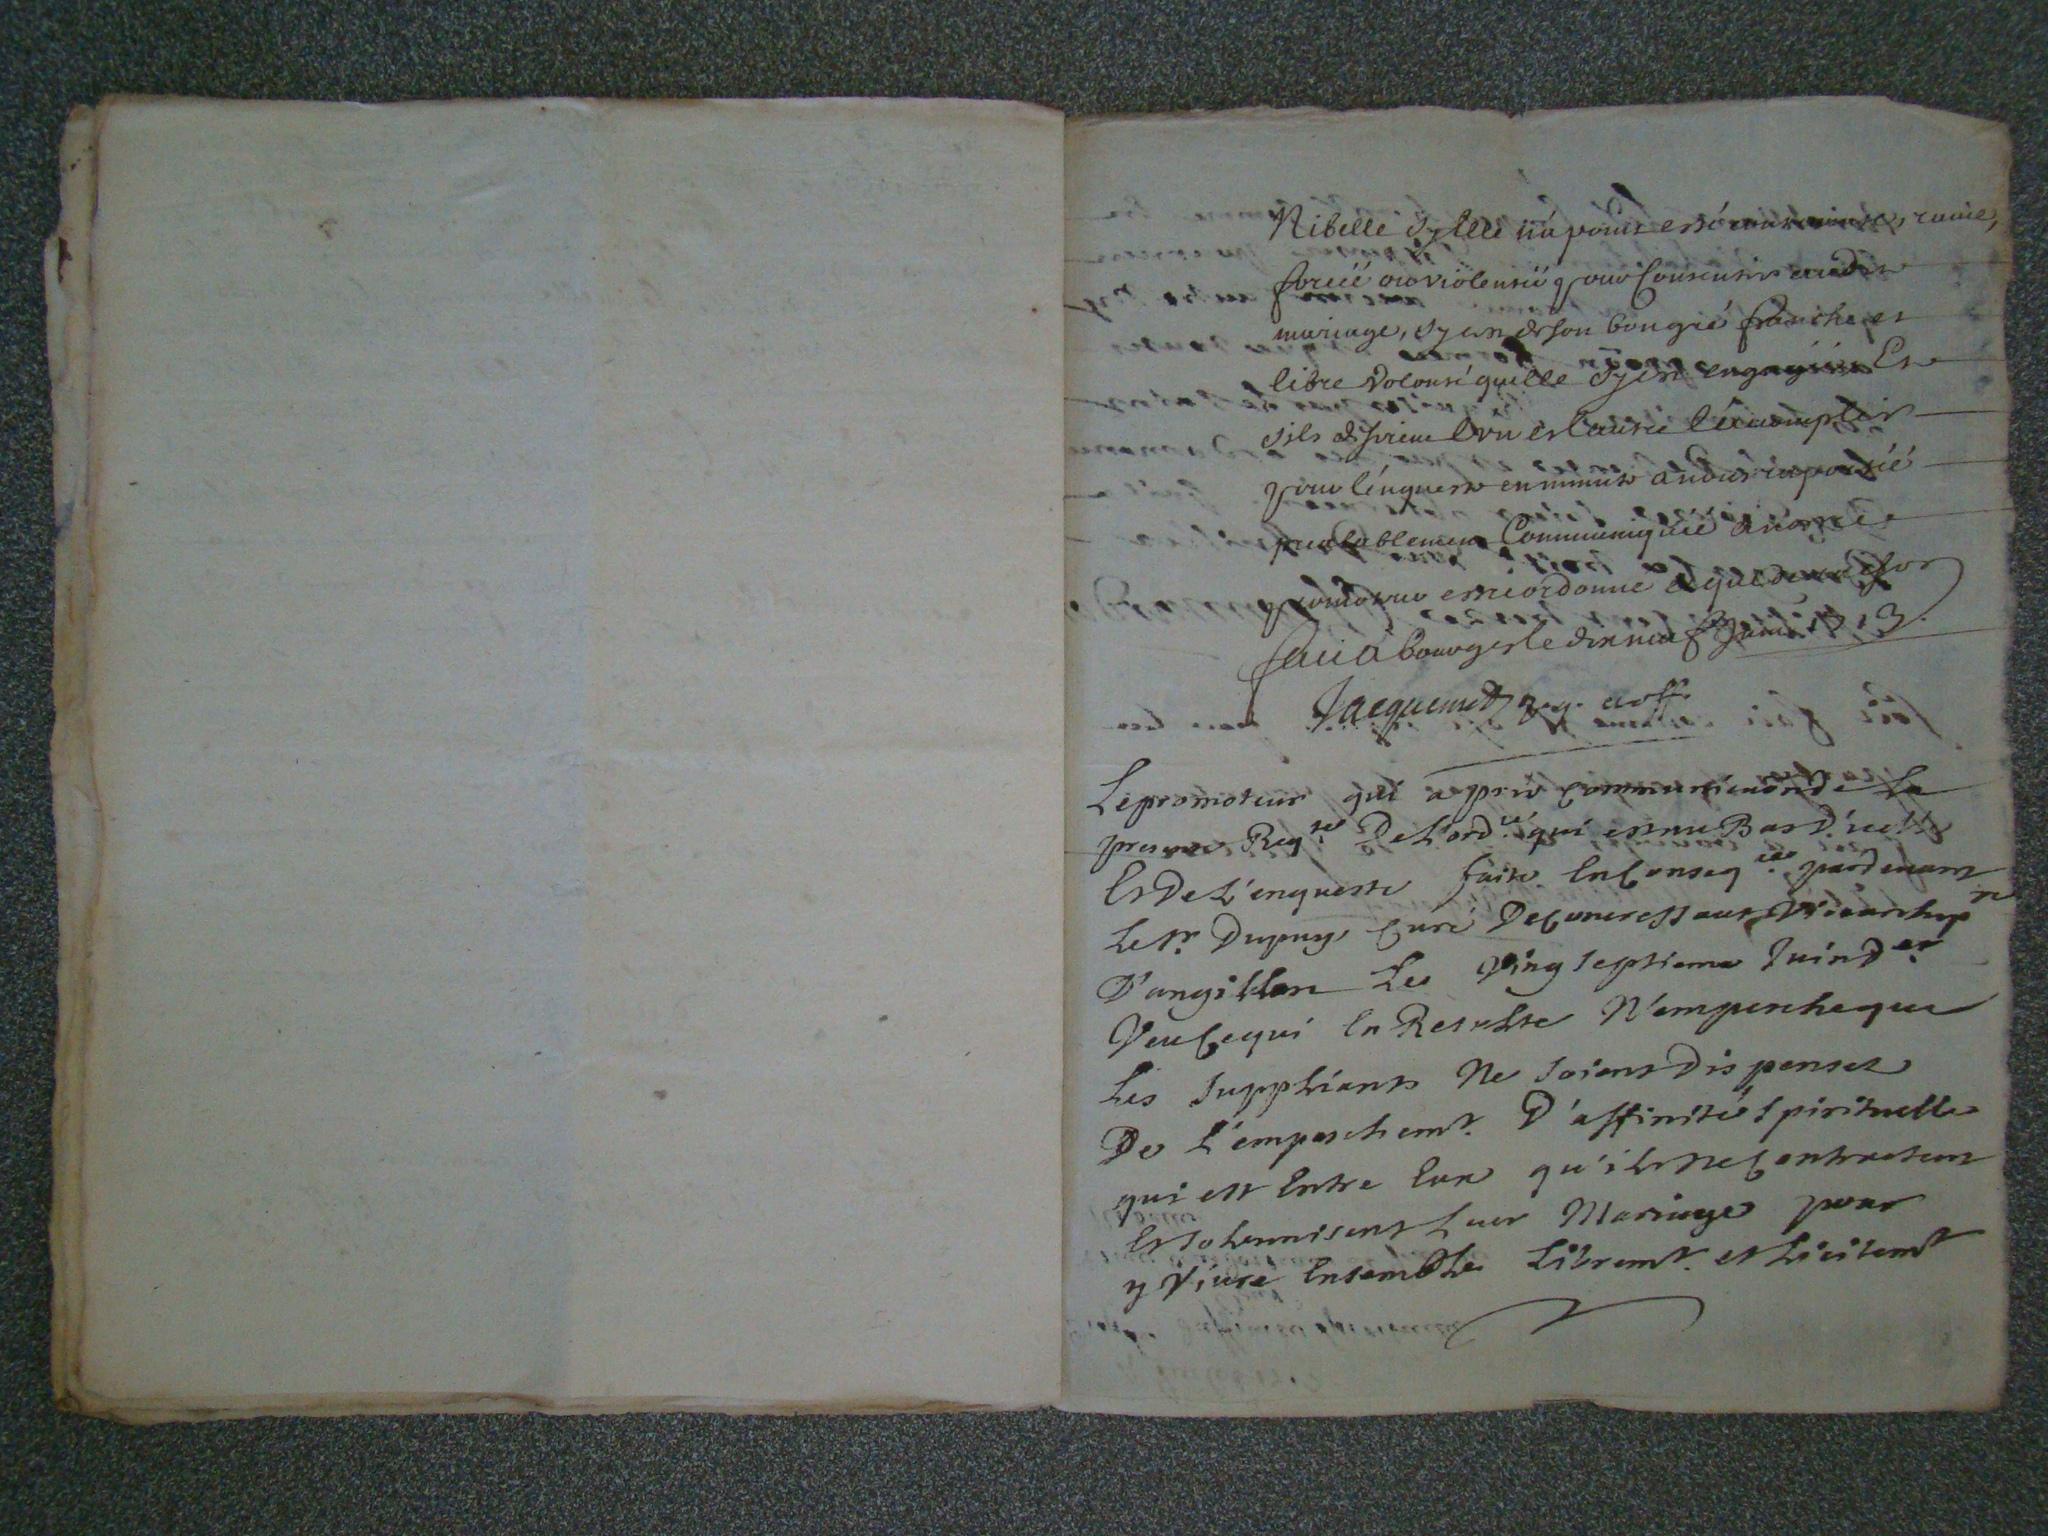 Ribelle sy Elle n'a point esté ravie,
forcée ou violentée pour Consentir audit
mariage, sy c'est de son bon gré franche et
libre volonté quelle sy est engagée Et
sils desirent l'un et lautre l'accomplir
pour l'enqueste en minute a nous raportée
prealablement Communiquée a nome
promoteur estre ordonné ce que de raison
fait a bourges le dixneuf Juin 1713.
Jacquemet vic. g. et off.
Le promoteur qui a pris communicaõn de La
presente Reqte. De L'ordce. qui est au Bas D'icelle
Et De L'enqueste faite En Conseqce. pardevant
Le Sr. Dupuy Curé De Concressaut Vic archipre
D'angillon Le Ving septieme Juin Der.
Veu Ce qui En Resulte N'empesche que
Les supphiants Ne soient Dispenset
De L'empeschemt. D'affinité spirituelle
qui est Entre Eux qu'ils ne Contractent
Et solennisent Leur Mariage pour
y Vivre Ensemble Libremt. et Licitemt